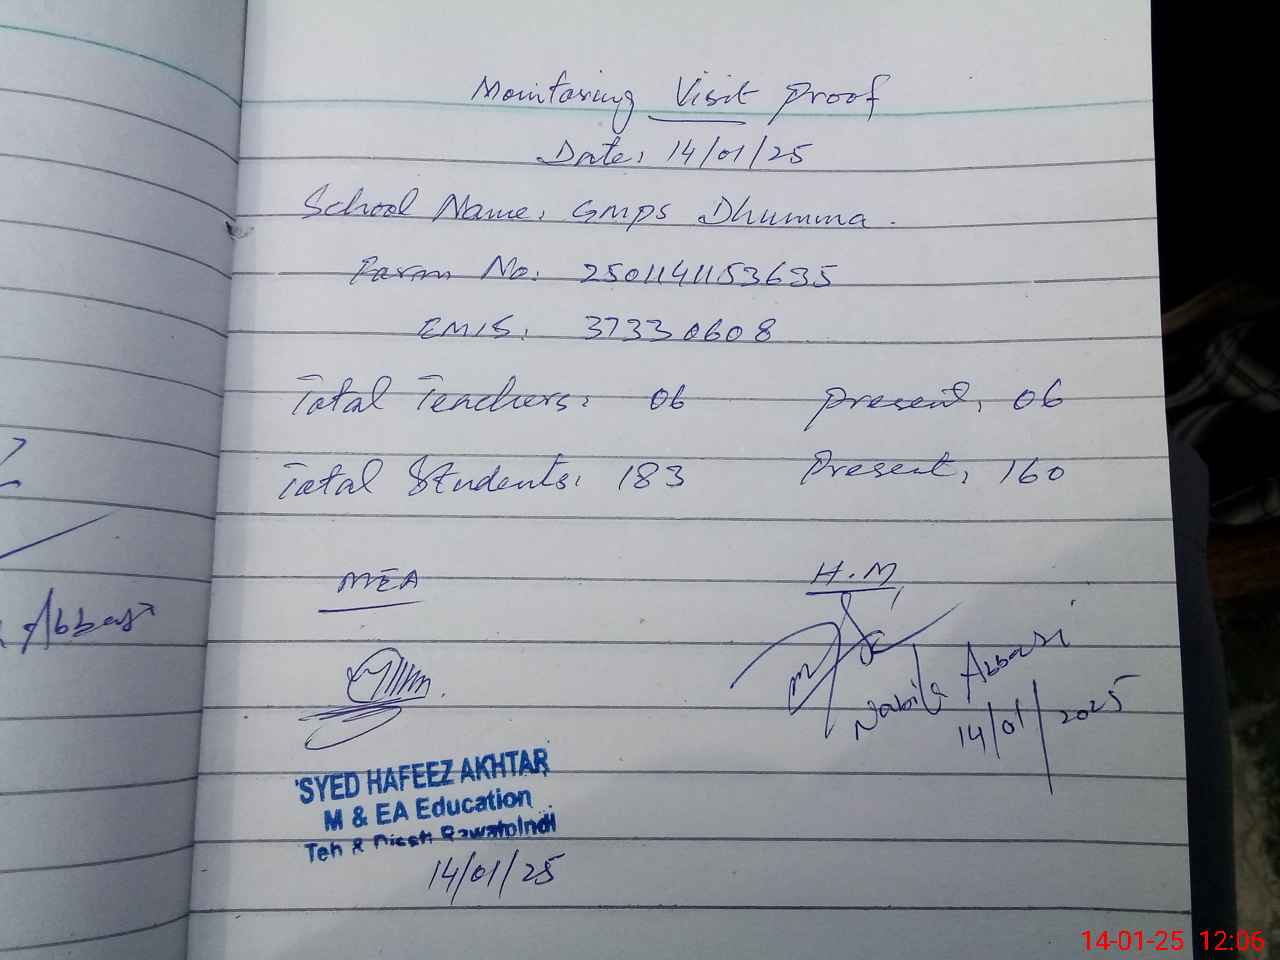 Monitoring Visit Proof
Date: 14/01/25
School Name: GMPS Dhumma.
Param No: 2501141153635
EMIS: 37330608
Total Teachers: 06 Present: 06
Total Students: 183 Present: 160
MEA H.M
Abbasi
Nabila Abbasi
14/01/2025
SYED HAFEEZ AKHTAR
M & EA Education
Teh & Distt Rawalpindi
14/01/25
14-01-25 12:06